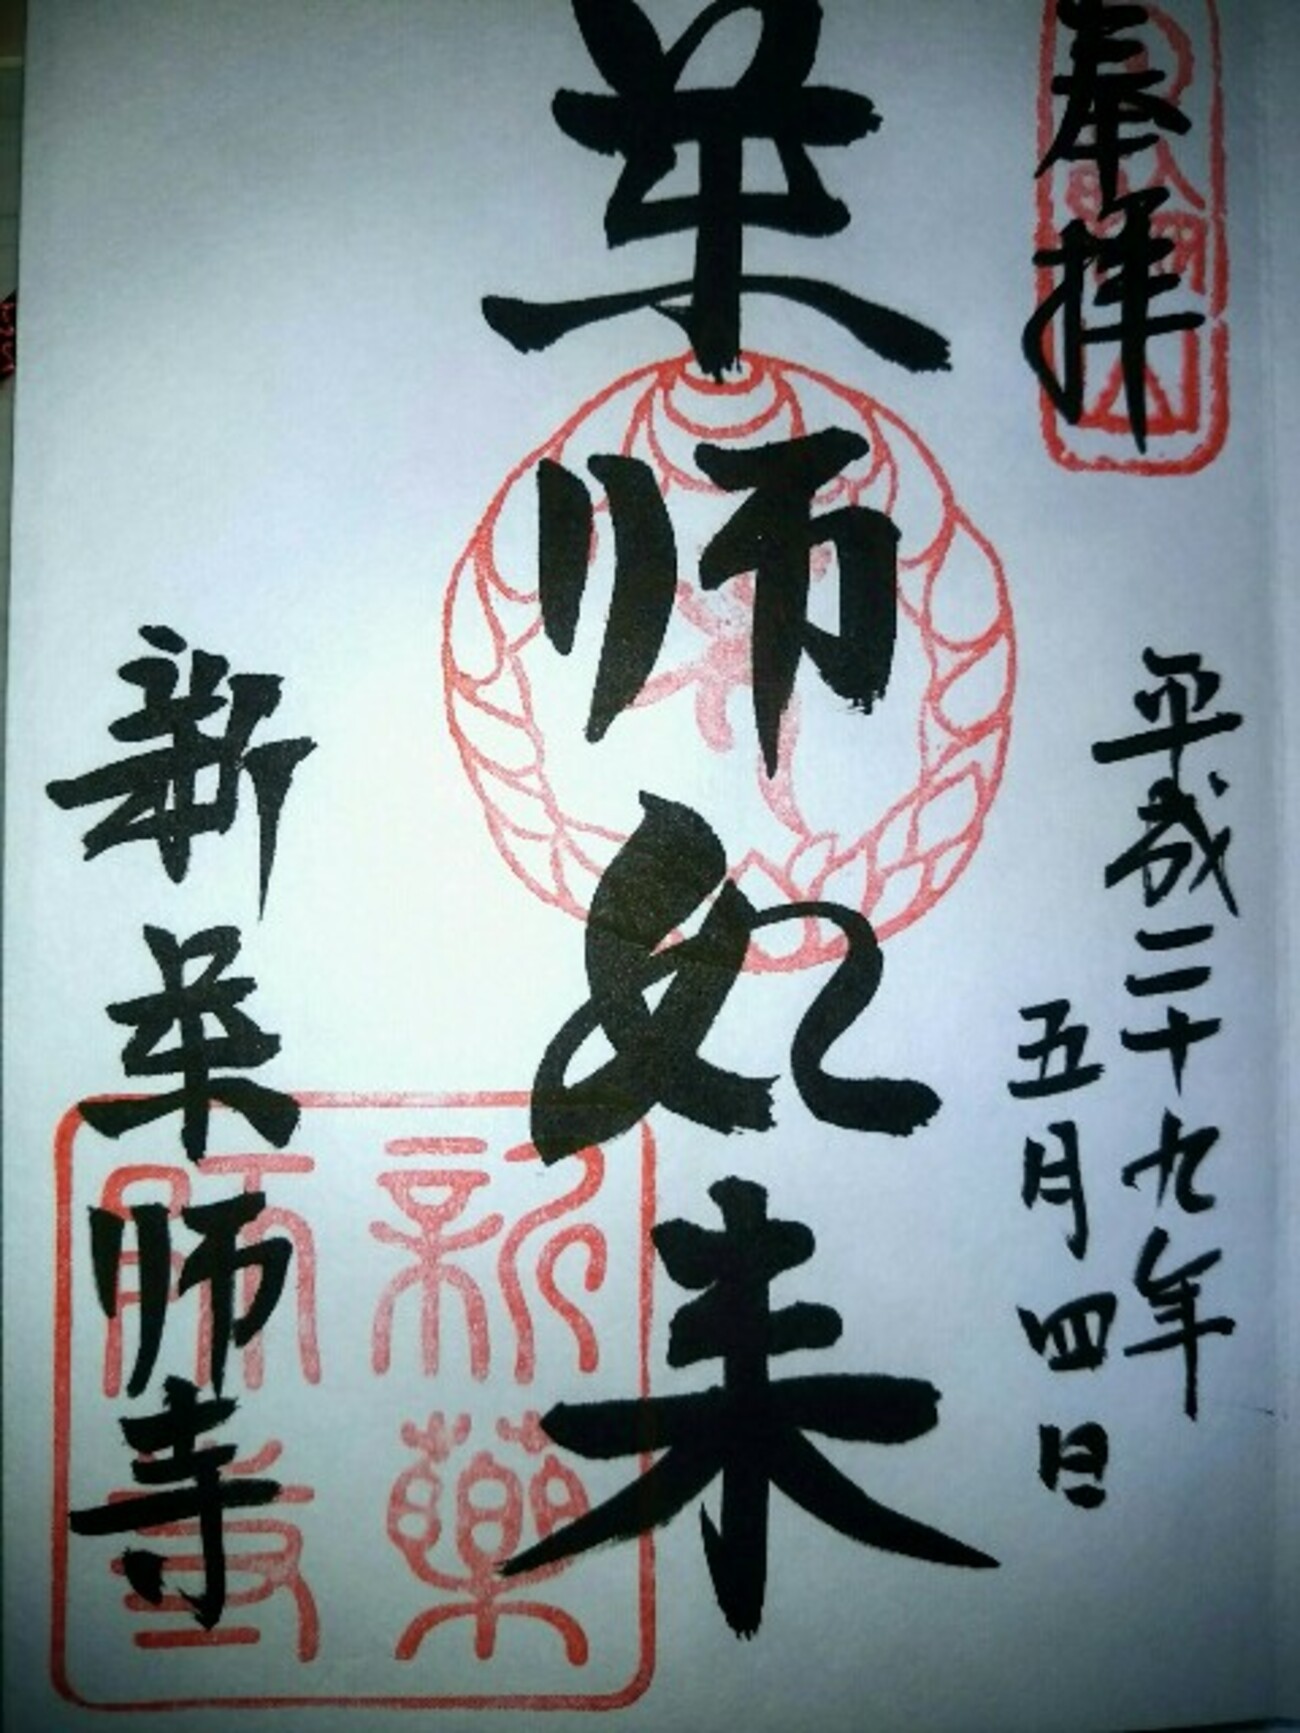 奉拝
平成二十九年
五月四日
薬师如来
新薬师寺
新薬
師寺